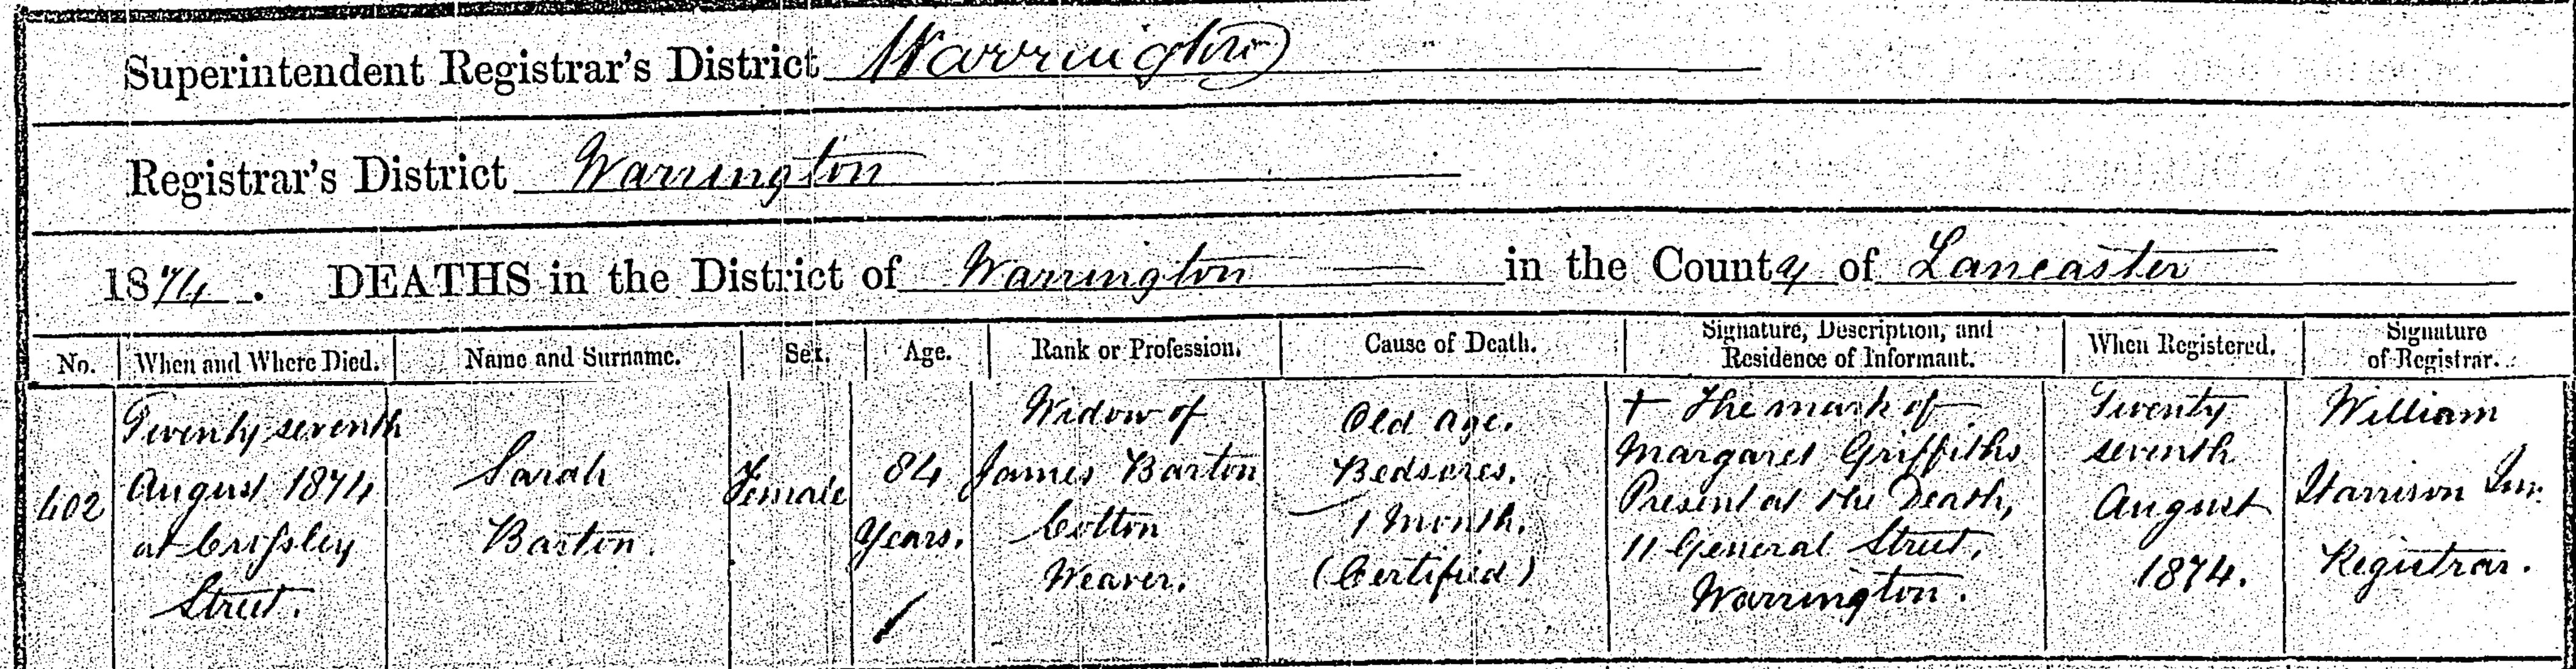 Superintendent Registrar's District Warrington
Registrar's District Warrington
1874. DEATHS in the District of Warrington in the County of Lancaster
No. When and Where Died. Name and Surname. Sex. Age. Rank or Profession. Cause of Death. Signature, Description, and Residence of Informant. When Registered. Signature of Registrar.
402
Twenty seventh
August 1874
at Crossley
Street.
Sarah
Barton.
Female
84
Years.
Widow of
James Barton
Cotton
Weaver.
Old age.
Bedsores.
1 Month.
(Certified)
+ The mark of
Margaret Griffiths
Present at the Death,
11 General Street,
Warrington.
Twenty
seventh
August
1874.
William
Harrison Jnr.
Registrar.